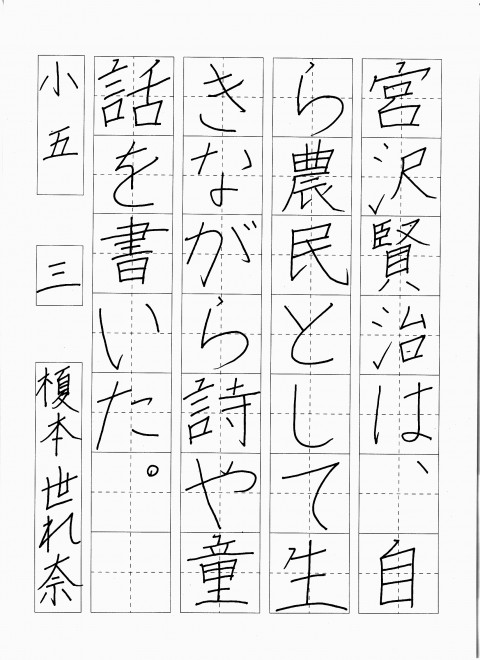 宮沢賢治は、自
ら農民として生
きながら詩や童
話を書いた。
小五 三 榎本世れ奈